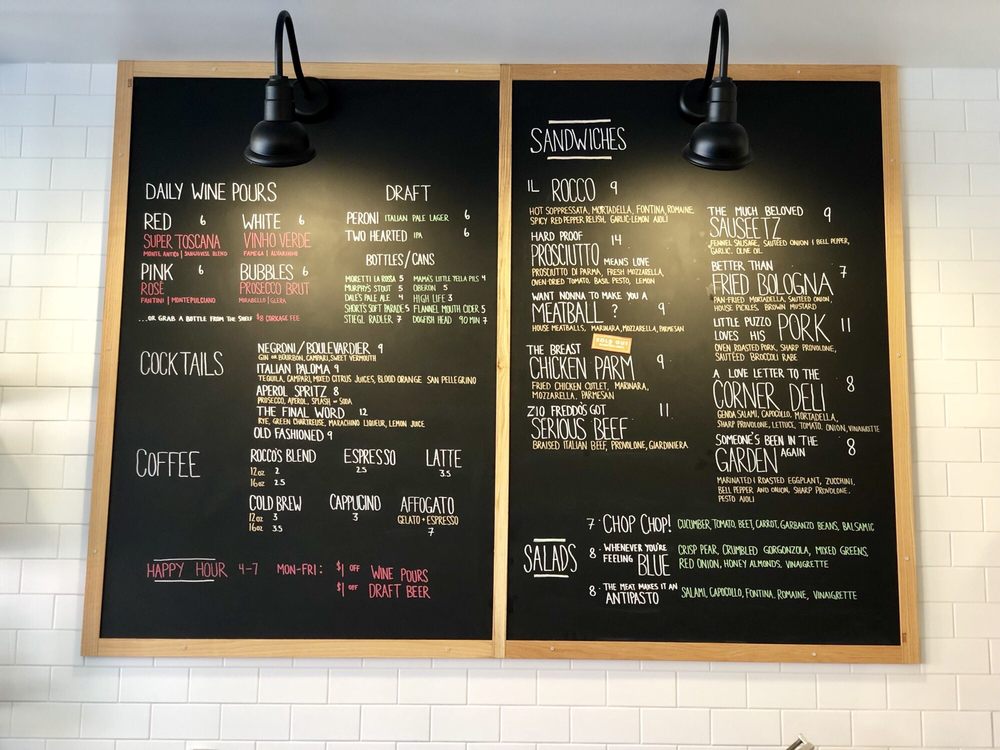 DAILY WINE POURS
RED 6
SUPER TOSCANA
MONTE ANTICO | SANGIOVESE BLEND
WHITE 6
VINHO VERDE
FAMEGA | ALVARINHO
PINK 6
ROSÉ
FANTINI | MONTEPULCIANO
BUBBLES 6
PROSECCO BRUT
MIRABELLO | GLERA
...OR GRAB A BOTTLE FROM THE SHELF $8 CORKAGE FEE
DRAFT
PERONI ITALIAN PALE LAGER 6
TWO HEARTED IPA 6
BOTTLES/CANS
MORETTI LA ROSSA 5
MURPHY'S STOUT 5
DALE'S PALE ALE 4
SHORT'S SOFT PARADE 5
STIEGL RADLER 7
MAMA'S LITTLE YELLA PILS 4
OBERON 5
HIGH LIFE 3
FLANNEL MOUTH CIDER 5
DOGFISH HEAD 90 MIN 7
COCKTAILS
NEGRONI/BOULEVARDIER 9
GIN OR BOURBON, CAMPARI, SWEET VERMOUTH
ITALIAN PALOMA 9
TEQUILA, CAMPARI, MIXED CITRUS JUICES, BLOOD ORANGE SAN PELLEGRINO
APEROL SPRITZ 8
PROSECCO, APEROL, SPLASH OF SODA
THE FINAL WORD 12
RYE, GREEN CHARTREUSE, MARACHINO LIQUEUR, LEMON JUICE
OLD FASHIONED 9
COFFEE
ROCCO'S BLEND
12oz 2
16oz 2.5
ESPRESSO
2.5
LATTE
3.5
COLD BREW
12oz 3
16oz 3.5
CAPPUCINO
3
AFFOGATO
GELATO + ESPRESSO
7
HAPPY HOUR 4-7 MON-FRI: $1 OFF WINE POURS
$1 OFF DRAFT BEER
SANDWICHES
IL ROCCO 9
HOT SOPPRESSATA, MORTADELLA, FONTINA, ROMAINE,
SPICY RED PEPPER RELISH, GARLIC-LEMON AIOLI
HARD PROOF
PROSCIUTTO MEANS LOVE 14
PROSCIUTTO DI PARMA, FRESH MOZZARELLA,
OVEN-DRIED TOMATO, BASIL PESTO, LEMON
WANT NONNA TO MAKE YOU A
MEATBALL ? 9
HOUSE MEATBALLS, MARINARA, MOZZARELLA, PARMESAN
SOLD OUT
THE BREAST
CHICKEN PARM 9
FRIED CHICKEN CUTLET, MARINARA,
MOZZARELLA, PARMESAN
ZIO FREDDO'S GOT 11
SERIOUS BEEF
BRAISED ITALIAN BEEF, PROVOLONE, GIARDINIERA
THE MUCH BELOVED 9
SAUSEETZ
FENNEL SAUSAGE, SAUTÉED ONION & BELL PEPPER,
GARLIC, OLIVE OIL
BETTER THAN 7
FRIED BOLOGNA
PAN-FRIED MORTADELLA, SAUTÉED ONION,
HOUSE PICKLES, BROWN MUSTARD
LITTLE PUZZO
LOVES HIS PORK 11
OVEN ROASTED PORK, SHARP PROVOLONE,
SAUTÉED BROCCOLI RABE
A LOVE LETTER TO THE
CORNER DELI 8
GENOA SALAMI, CAPOCOLLO, MORTADELLA,
SHARP PROVOLONE, LETTUCE, TOMATO, ONION, VINAIGRETTE
SOMEONE'S BEEN IN THE
GARDEN AGAIN 8
MARINATED & ROASTED EGGPLANT, ZUCCHINI,
BELL PEPPER AND ONION, SHARP PROVOLONE,
PESTO AIOLI
SALADS
7 · CHOP CHOP! CUCUMBER, TOMATO, BEET, CARROT, GARBANZO BEANS, BALSAMIC
8 · WHENEVER YOU'RE FEELING BLUE CRISP PEAR, CRUMBLED GORGONZOLA, MIXED GREENS,
RED ONION, HONEY ALMONDS, VINAIGRETTE
8 · THE MEAT MAKES IT AN
ANTIPASTO SALAMI, CAPOCOLLO, FONTINA, ROMAINE, VINAIGRETTE